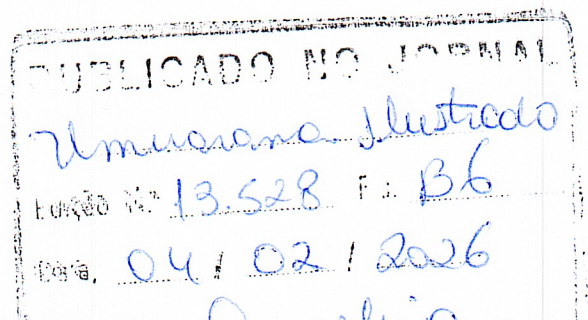 PUBLICADO NO JORNAL
Umuarama Ilustrado
Edição Nº 13.528 F.: B6
Data, 04 / 02 / 2026